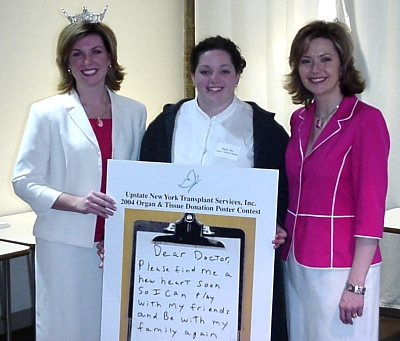 Upstate New York Transplant Services, Inc.
2004 Organ & Tissue Donation Poster Contest
Dear Doctor,
Please find me a
new heart soon
So I Can Play
with My friends
and Be with my
family again